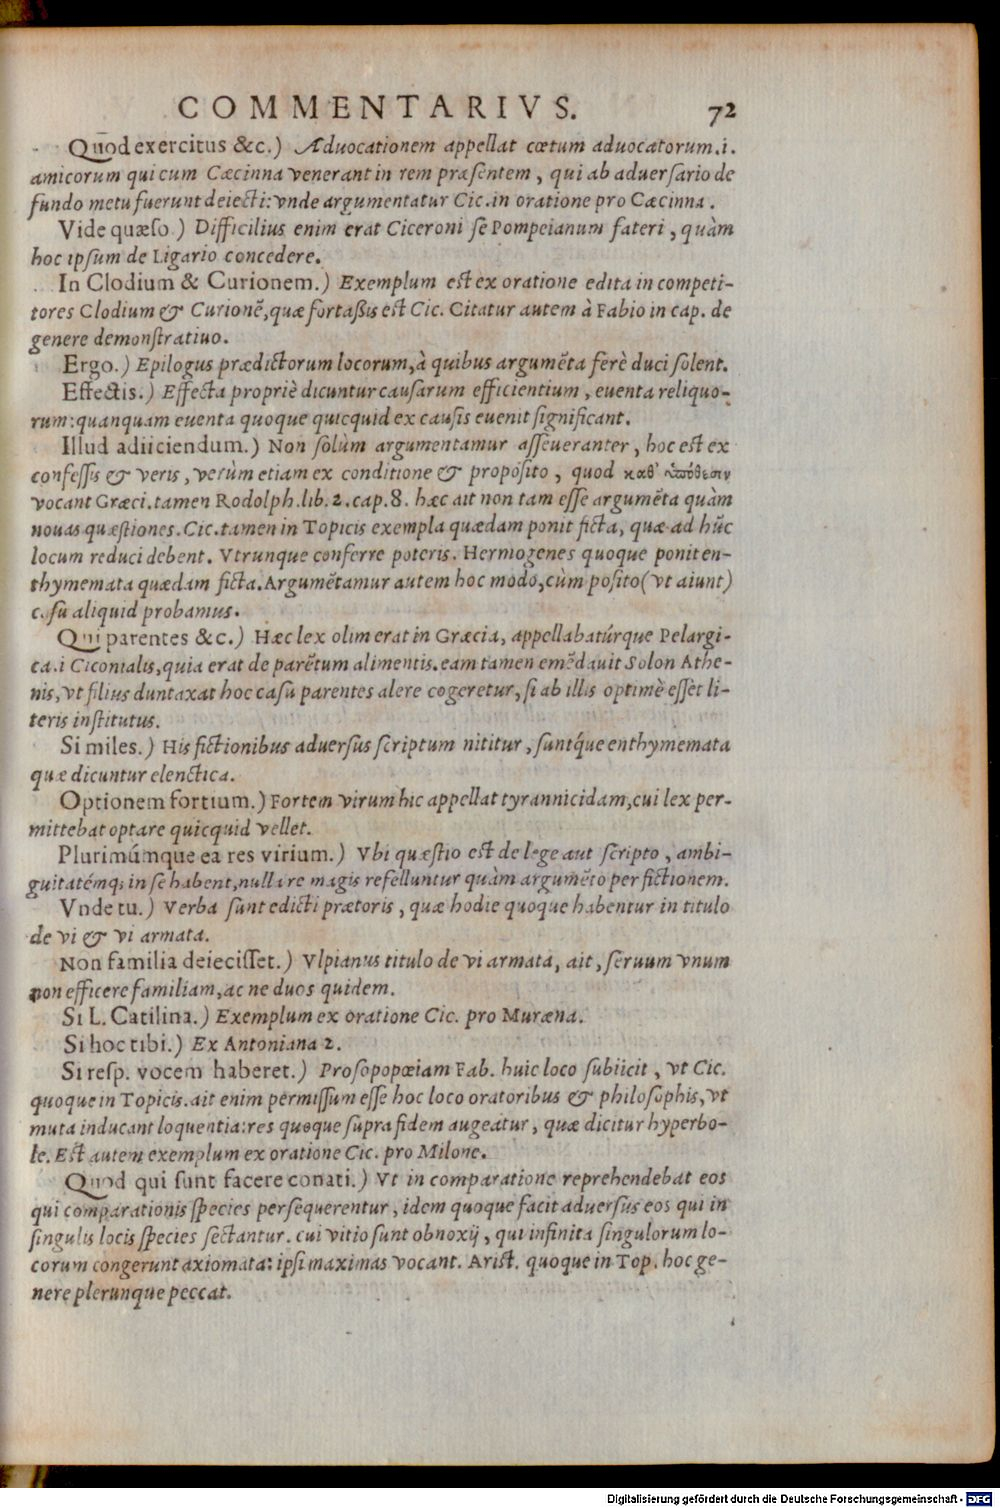 COMMENTARIVS. 72
Quōd exercitus &c.) Aduocationem appellat cœtum aduocatorum.i.
amicorum qui cum Cæcinna venerant in rem præsentem, qui ab aduersario de
fundo metu fuerunt deiecti: vnde argumentatur Cic. in oratione pro Cæcinna.
Vide quæso.) Difficilius enim erat Ciceroni se Pompeianum fateri, quàm
hoc ipsum de Ligario concedere.
In Clodium & Curionem.) Exemplum est ex oratione edita in competi-
tores Clodium & Curionẽ, quæ fortaßis est Cic. Citatur autem à Fabio in cap. de
genere demonstratiuo.
Ergo.) Epilogus prædictorum locorum, à quibus argumẽta ferè duci solent.
Effectis.) Effecta propriè dicuntur causarum efficientium, euenta reliquo-
rum: quanquam euenta quoque quicquid ex causis euenit significant.
Illud adiiciendum.) Non solùm argumentamur asseueranter, hoc est ex
confessis & veris, verùm etiam ex conditione & proposito, quod καθ' ὑπόθεσιν
vocant Græci. tamen Rodolph. lib. 2. cap. 8. hæc ait non tam esse argumẽta quàm
nouas quæstiones. Cic. tamen in Topicis exempla quædam ponit ficta, quæ ad hũc
locum reduci debent. Vtrunque conferre poteris. Hermogenes quoque ponit en-
thymemata quædam ficta. Argumẽtamur autem hoc modo, cùm posito (vt aiunt)
casu aliquid probamus.
Qui parentes &c.) Hæc lex olim erat in Græcia, appellabatúrque Pelargi-
ca.i Ciconialis, quia erat de parẽtum alimentis. eam tamen emẽdauit Solon Athe-
nis, vt filius duntaxat hoc casu parentes alere cogeretur, si ab illis optimè esset li-
teris institutus.
Si miles.) His fictionibus aduersus scriptum nititur, suntq́ue enthymemata
quæ dicuntur elenctica.
Optionem fortium.) Fortem virum hic appellat tyrannicidam, cui lex per-
mittebat optare quicquid vellet.
Plurimúmque ea res virium.) Vbi quæstio est de lege aut scripto, ambi-
guitatémq; in se habent, nulla re magis refelluntur quàm argumẽto per fictionem.
Vnde tu.) Verba sunt edicti prætoris, quæ hodie quoque habentur in titulo
de vi & vi armata.
Non familia deiecisset.) Vlpianus titulo de vi armata, ait, seruum vnum
non efficere familiam, ac ne duos quidem.
Si L. Catilina.) Exemplum ex oratione Cic. pro Muræna.
Si hoc tibi.) Ex Antoniana 2.
Si resp. vocem haberet.) Prosopopœiam Fab. huic loco subiicit, vt Cic.
quoque in Topicis. ait enim permissum esse hoc loco oratoribus & philosophis, vt
muta inducant loquentia: res quoque supra fidem augeatur, quæ dicitur hyperbo-
le. Est autem exemplum ex oratione Cic. pro Milone.
Quod qui sunt facere conati.) Vt in comparatione reprehendebat eos
qui comparationis species persequerentur, idem quoque facit aduersus eos qui in
singulis locis species sectantur. cui vitio sunt obnoxij, qui infinita singulorum lo-
corum congerunt axiomata: ipsi maximas vocant. Arist. quoque in Top. hoc ge-
nere plerunque peccat.
Digitalisierung gefördert durch die Deutsche Forschungsgemeinschaft - DFG